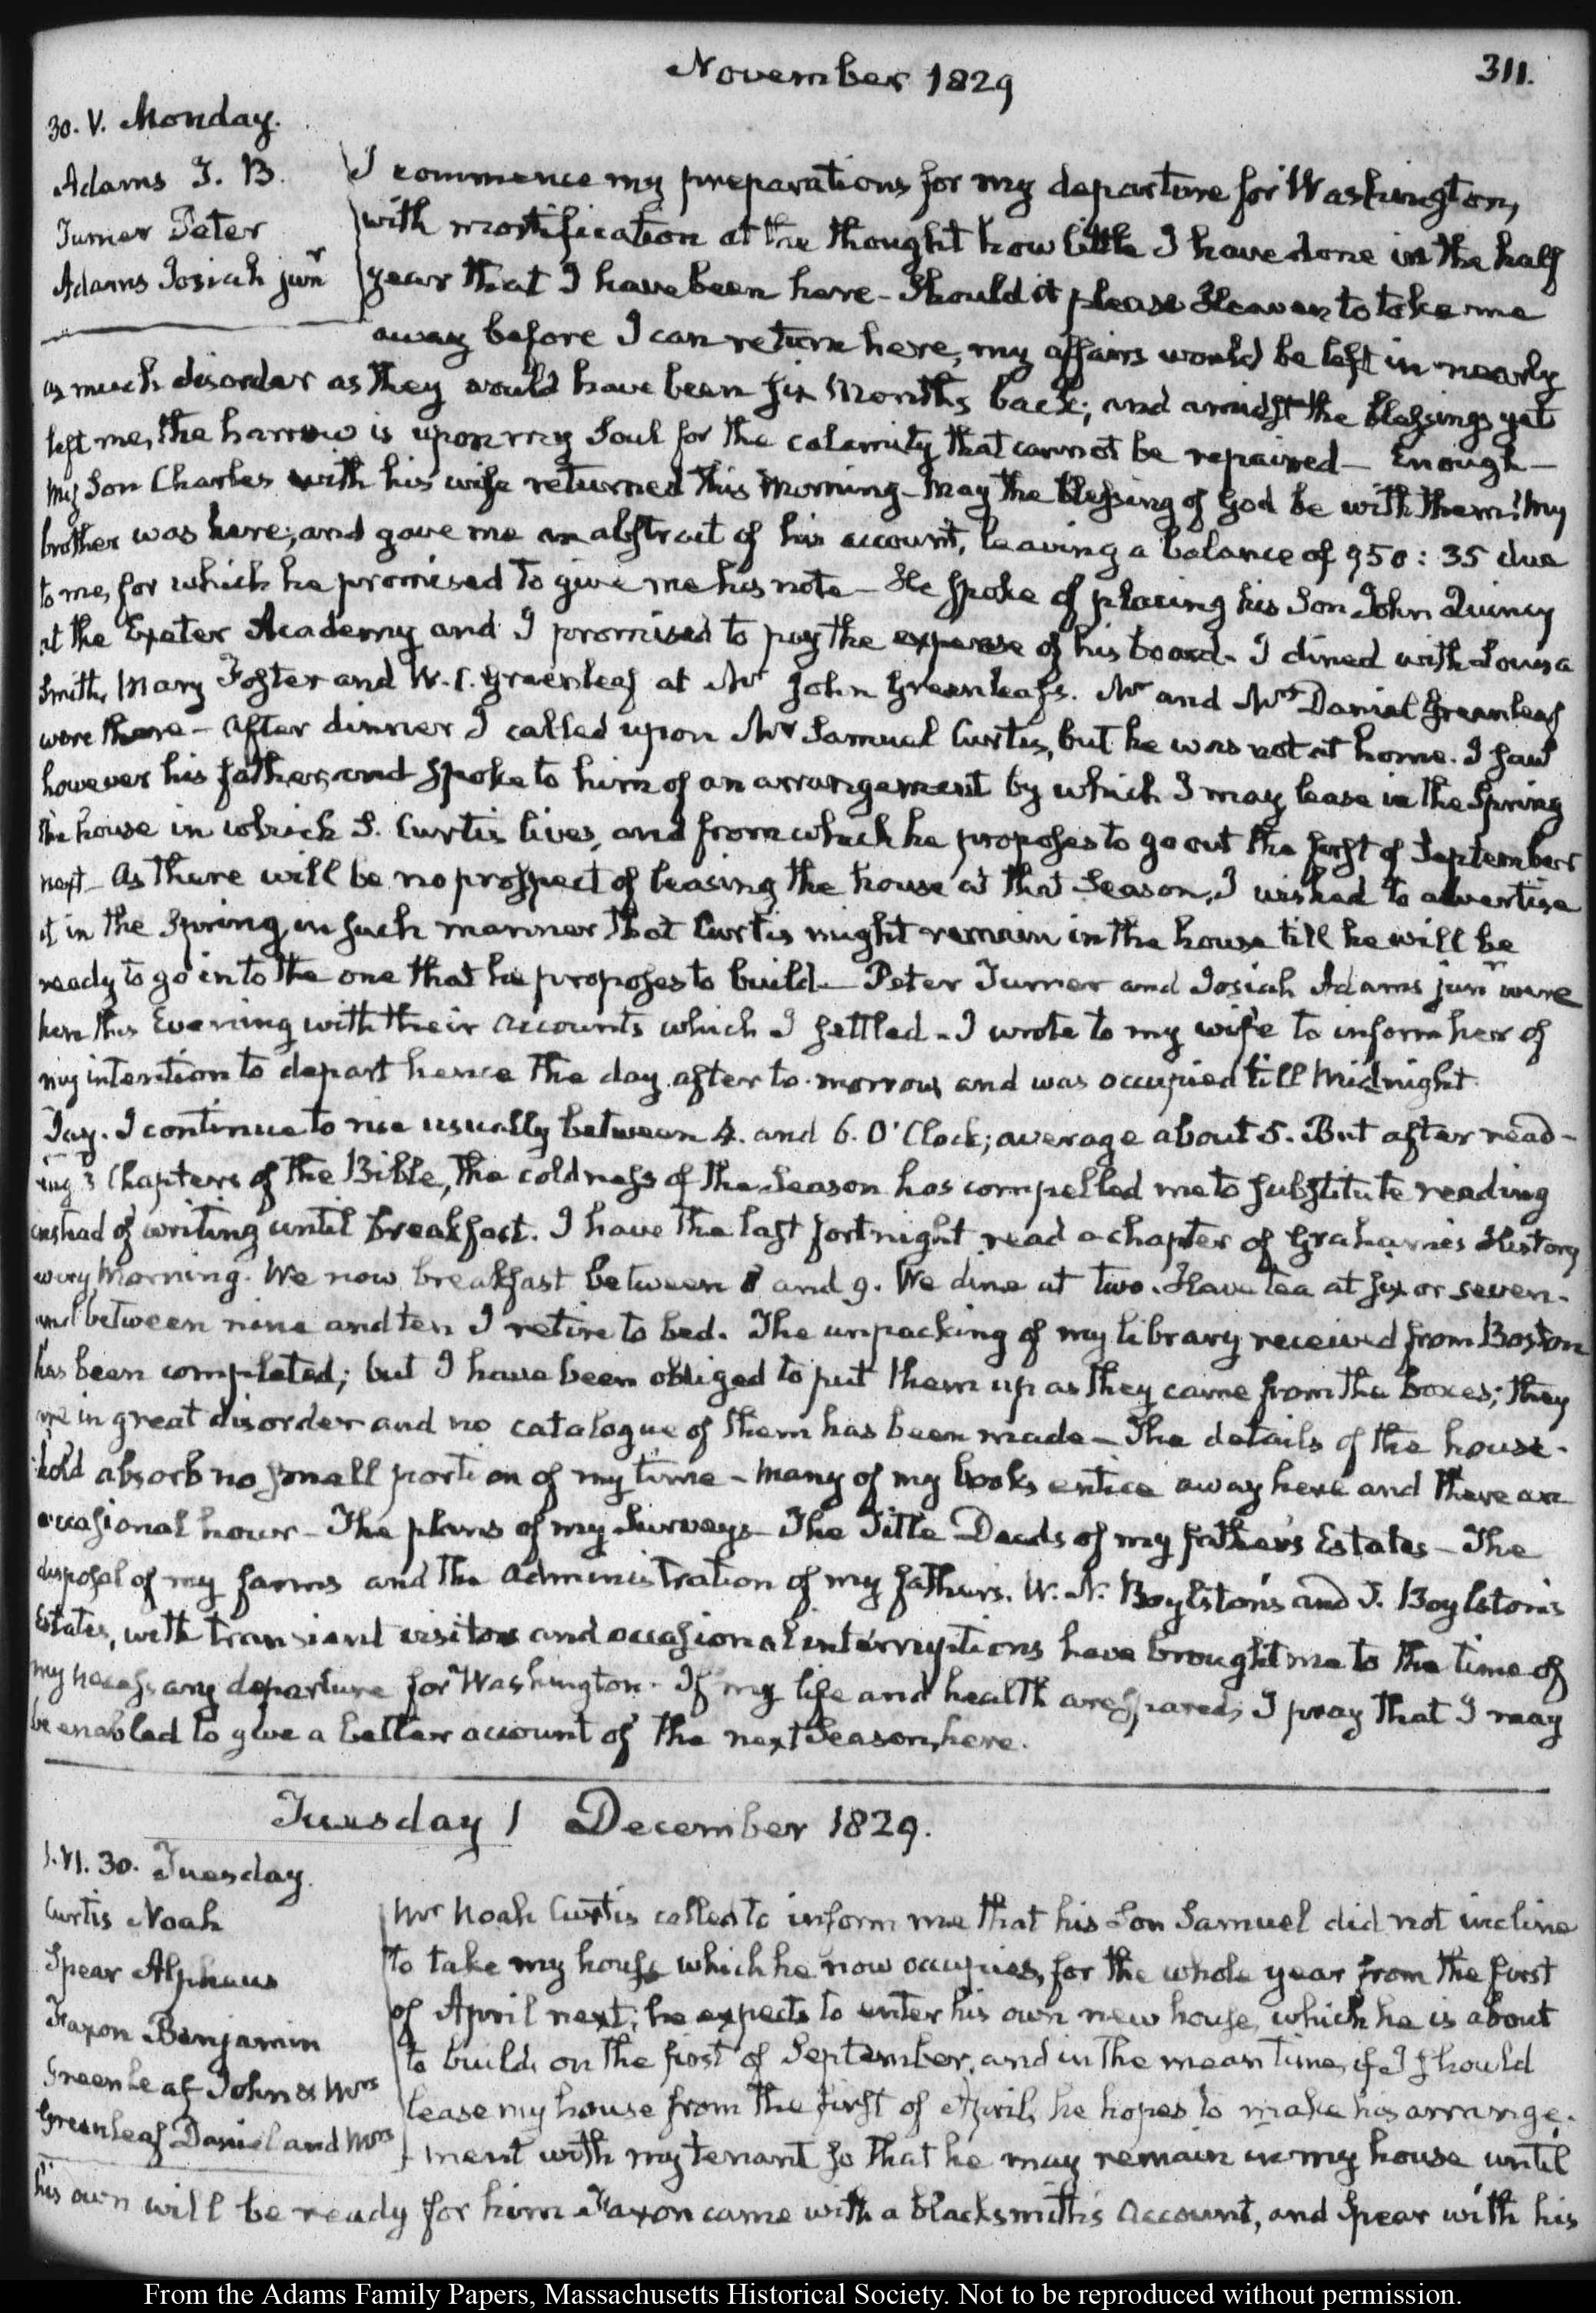 November 1829
311.
30. V. Monday.
Adams T. B.
Turner Peter
Adams Josiah junr
I commence my preparations for my departure for Washington,
with mortification at the thought how little I have done in the half
year that I have been here – Should it please Heaven to take me
away before I can return here, my affairs would be left in nearly
as much disorder as they would have been six months back; and amidst the blessings yet
left me, the harrow is upon my Soul for the calamity that cannot be repaired – Enough –
My Son Charles with his wife returned this Morning – May the blessing of God be with them! My
brother was here; and gave me an abstract of his account, leaving a balance of 950: 35 due
to me, for which he promised to give me his note – He spoke of placing his Son John Quincy
at the Exeter Academy and I promised to pay the expense of his board – I dined with Louisa
Smith, Mary Foster and W. C. Greenleaf at Mr John Greenleaf's. Mr and Mrs Daniel Greenleaf
were there – After dinner I called upon Mr Samuel Curtis, but he was not at home. I saw
however his father, and spoke to him of an arrangement by which I may lease in the Spring
the house in which S. Curtis lives, and from which he proposes to go out the first of September
next – As there will be no prospect of leasing the house at that Season, I wished to advertise
it in the Spring, in such manner that Curtis might remain in the house till he will be
ready to go into the one that he proposes to build – Peter Turner and Josiah Adams junr were
here this Evening with their accounts which I settled – I wrote to my wife to inform her of
my intention to depart hence the day after to-morrow, and was occupied till Midnight.
Day. I continue to rise usually between 4. and 6. O'Clock; average about 5. But after read-
ing 3 Chapters of the Bible, the coldness of the Season has compelled me to substitute reading
instead of writing until breakfast. I have the last fortnight read a chapter of Grahame's History
every Morning. We now breakfast between 8 and 9. We dine at two. Have tea at six or seven.
and between nine and ten I retire to bed. The unpacking of my library received from Boston
has been completed; but I have been obliged to put them up as they came from the boxes; they
are in great disorder and no catalogue of them has been made – The details of the house-
hold absorb no small portion of my time – Many of my books entice away here and there an
occasional hour – The plans of my Surveys – The Title Deeds of my father's Estates – The
disposal of my farms and the administration of my father's, W. N. Boylston's and T. Boylston's
Estates, with transient visitors and occasional interruptions have brought me to the time of
my necessary departure for Washington. If my life and health are spared, I pray that I may
be enabled to give a better account of the next Season, here.
Tuesday 1 December 1829.
1. VI. 30. Tuesday.
Curtis Noah
Spear Alpheus
Faxon Benjamin
Greenleaf John & Mrs
Greenleaf Daniel and Mrs
Mr Noah Curtis called to inform me that his Son Samuel did not incline
to take my house which he now occupies, for the whole year from the first
of April next; he expects to enter his own new house, which he is about
to build, on the first of September, and in the mean time, if I should
lease my house from the first of April, he hopes to make his arrange-
ment with my tenant so that he may remain in my house until
his own will be ready for him Faxon came with a blacksmith's account, and Spear with his
From the Adams Family Papers, Massachusetts Historical Society. Not to be reproduced without permission.